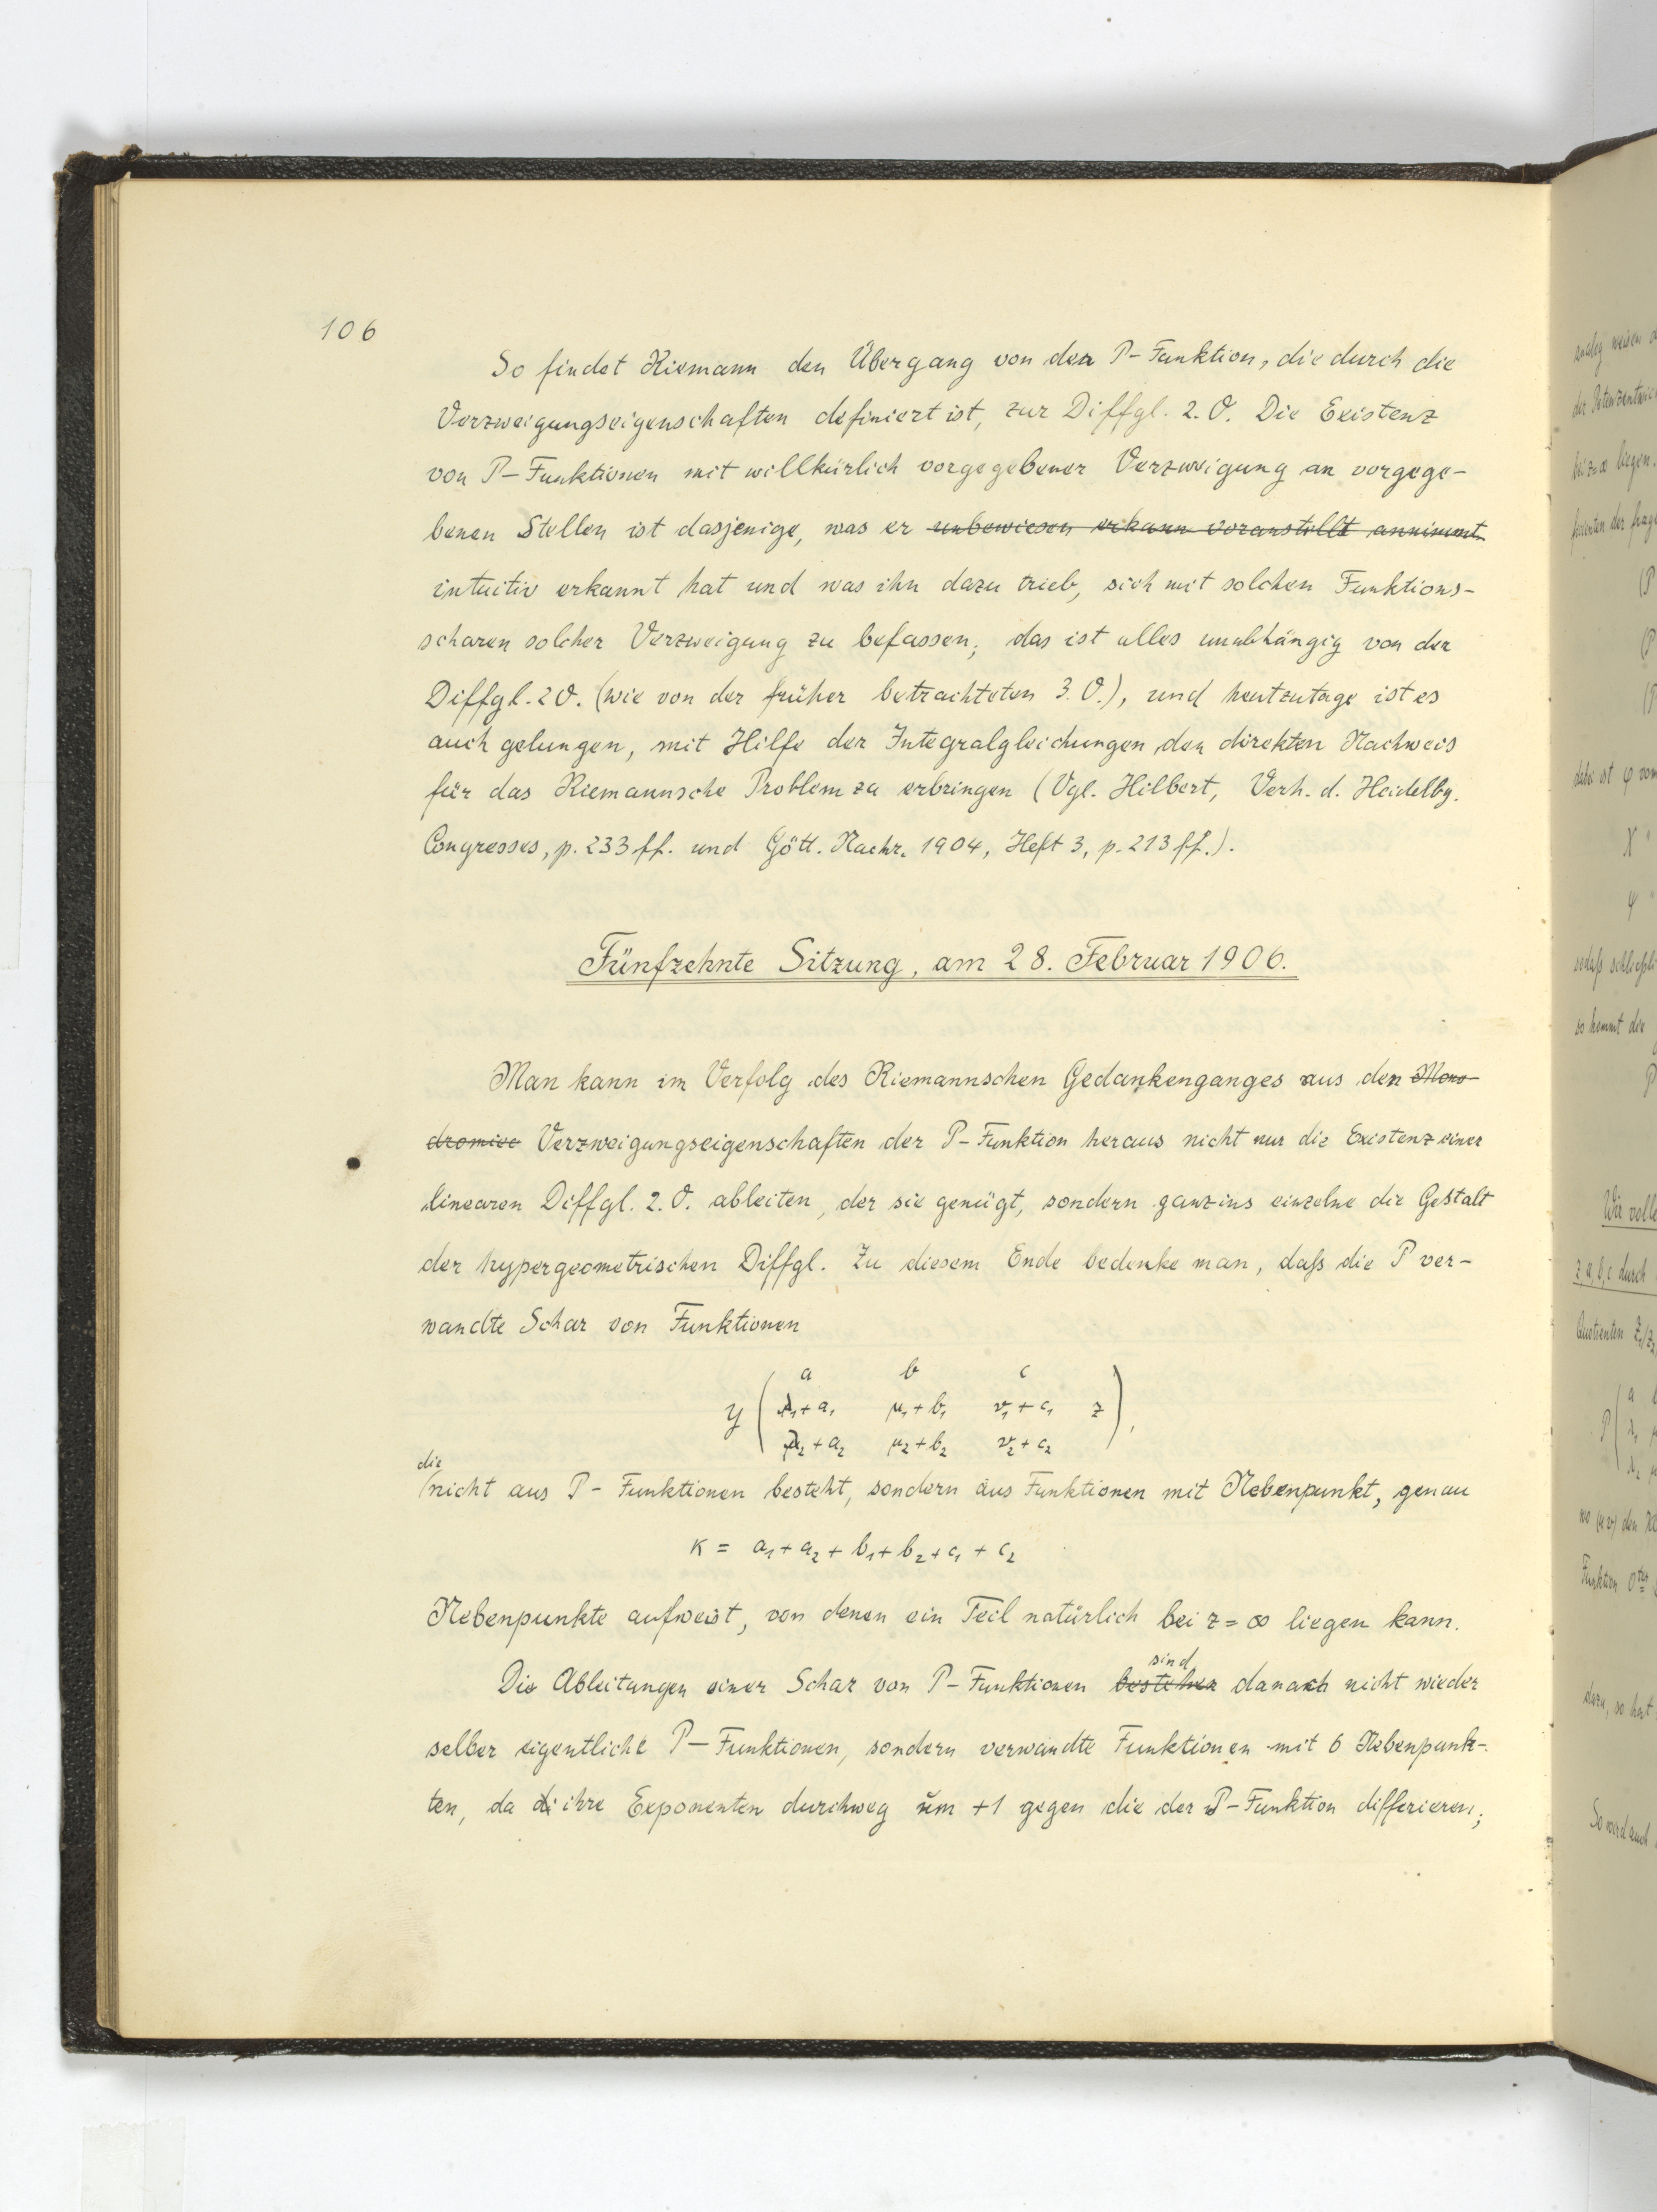 106
So findet Riemann den Übergang von der P-Funktion, die durch die
Verzweigungseigenschaften definiert ist, zur Diffgl. 2. O. Die Existenz
von P-Funktionen mit willkürlich vorgegebener Verzweigung an vorgege-
benen Stellen ist dasjenige, was er unbewiesen voranstellt annimmt
intuitiv erkannt hat und was ihn dazu trieb, sich mit solchen Funktions-
scharen solcher Verzweigung zu befassen; das ist alles unabhängig von der
Diffgl. 2 O. (wie von der früher betrachteten 3. O.), und heutzutage ist es
auch gelungen, mit Hilfe der Integralgleichungen den direkten Nachweis
für das Riemannsche Problem zu erbringen (Vgl. Hilbert, Verh. d. Heidelbg.
Congresses, p. 233 ff. und Gött. Nachr. 1904, Heft 3, p. 213 ff.).
Fünfzehnte Sitzung, am 28. Februar 1906.
Man kann im Verfolg des Riemannschen Gedankenganges aus den Mono-
dromiee Verzweigungseigenschaften der P-Funktion heraus nicht nur die Existenz einer
linearen Diffgl. 2. O. ableiten, der sie genügt, sondern ganz ins einzelne die Gestalt
der hypergeometrischen Diffgl. Zu diesem Ende bedenke man, daß die P ver-
wandte Schar von Funktionen
a b c
y ( λ₁+a₁ μ₁+b₁ ν₁+c₁ z ),
λ₂+a₂ μ₂+b₂ ν₂+c₂
die
(nicht aus P-Funktionen besteht, sondern aus Funktionen mit Nebenpunkt, genau
κ = a₁+a₂+b₁+b₂+c₁+c₂
Nebenpunkte aufweist, von denen ein Teil natürlich bei z = ∞ liegen kann.
sind
Die Ableitungen einer Schar von P-Funktionen bestehen danach nicht wieder
selber eigentliche P-Funktionen, sondern verwandte Funktionen mit 6 Nebenpunk-
ten, da di ihre Exponenten durchweg um +1 gegen die der P-Funktion differieren;